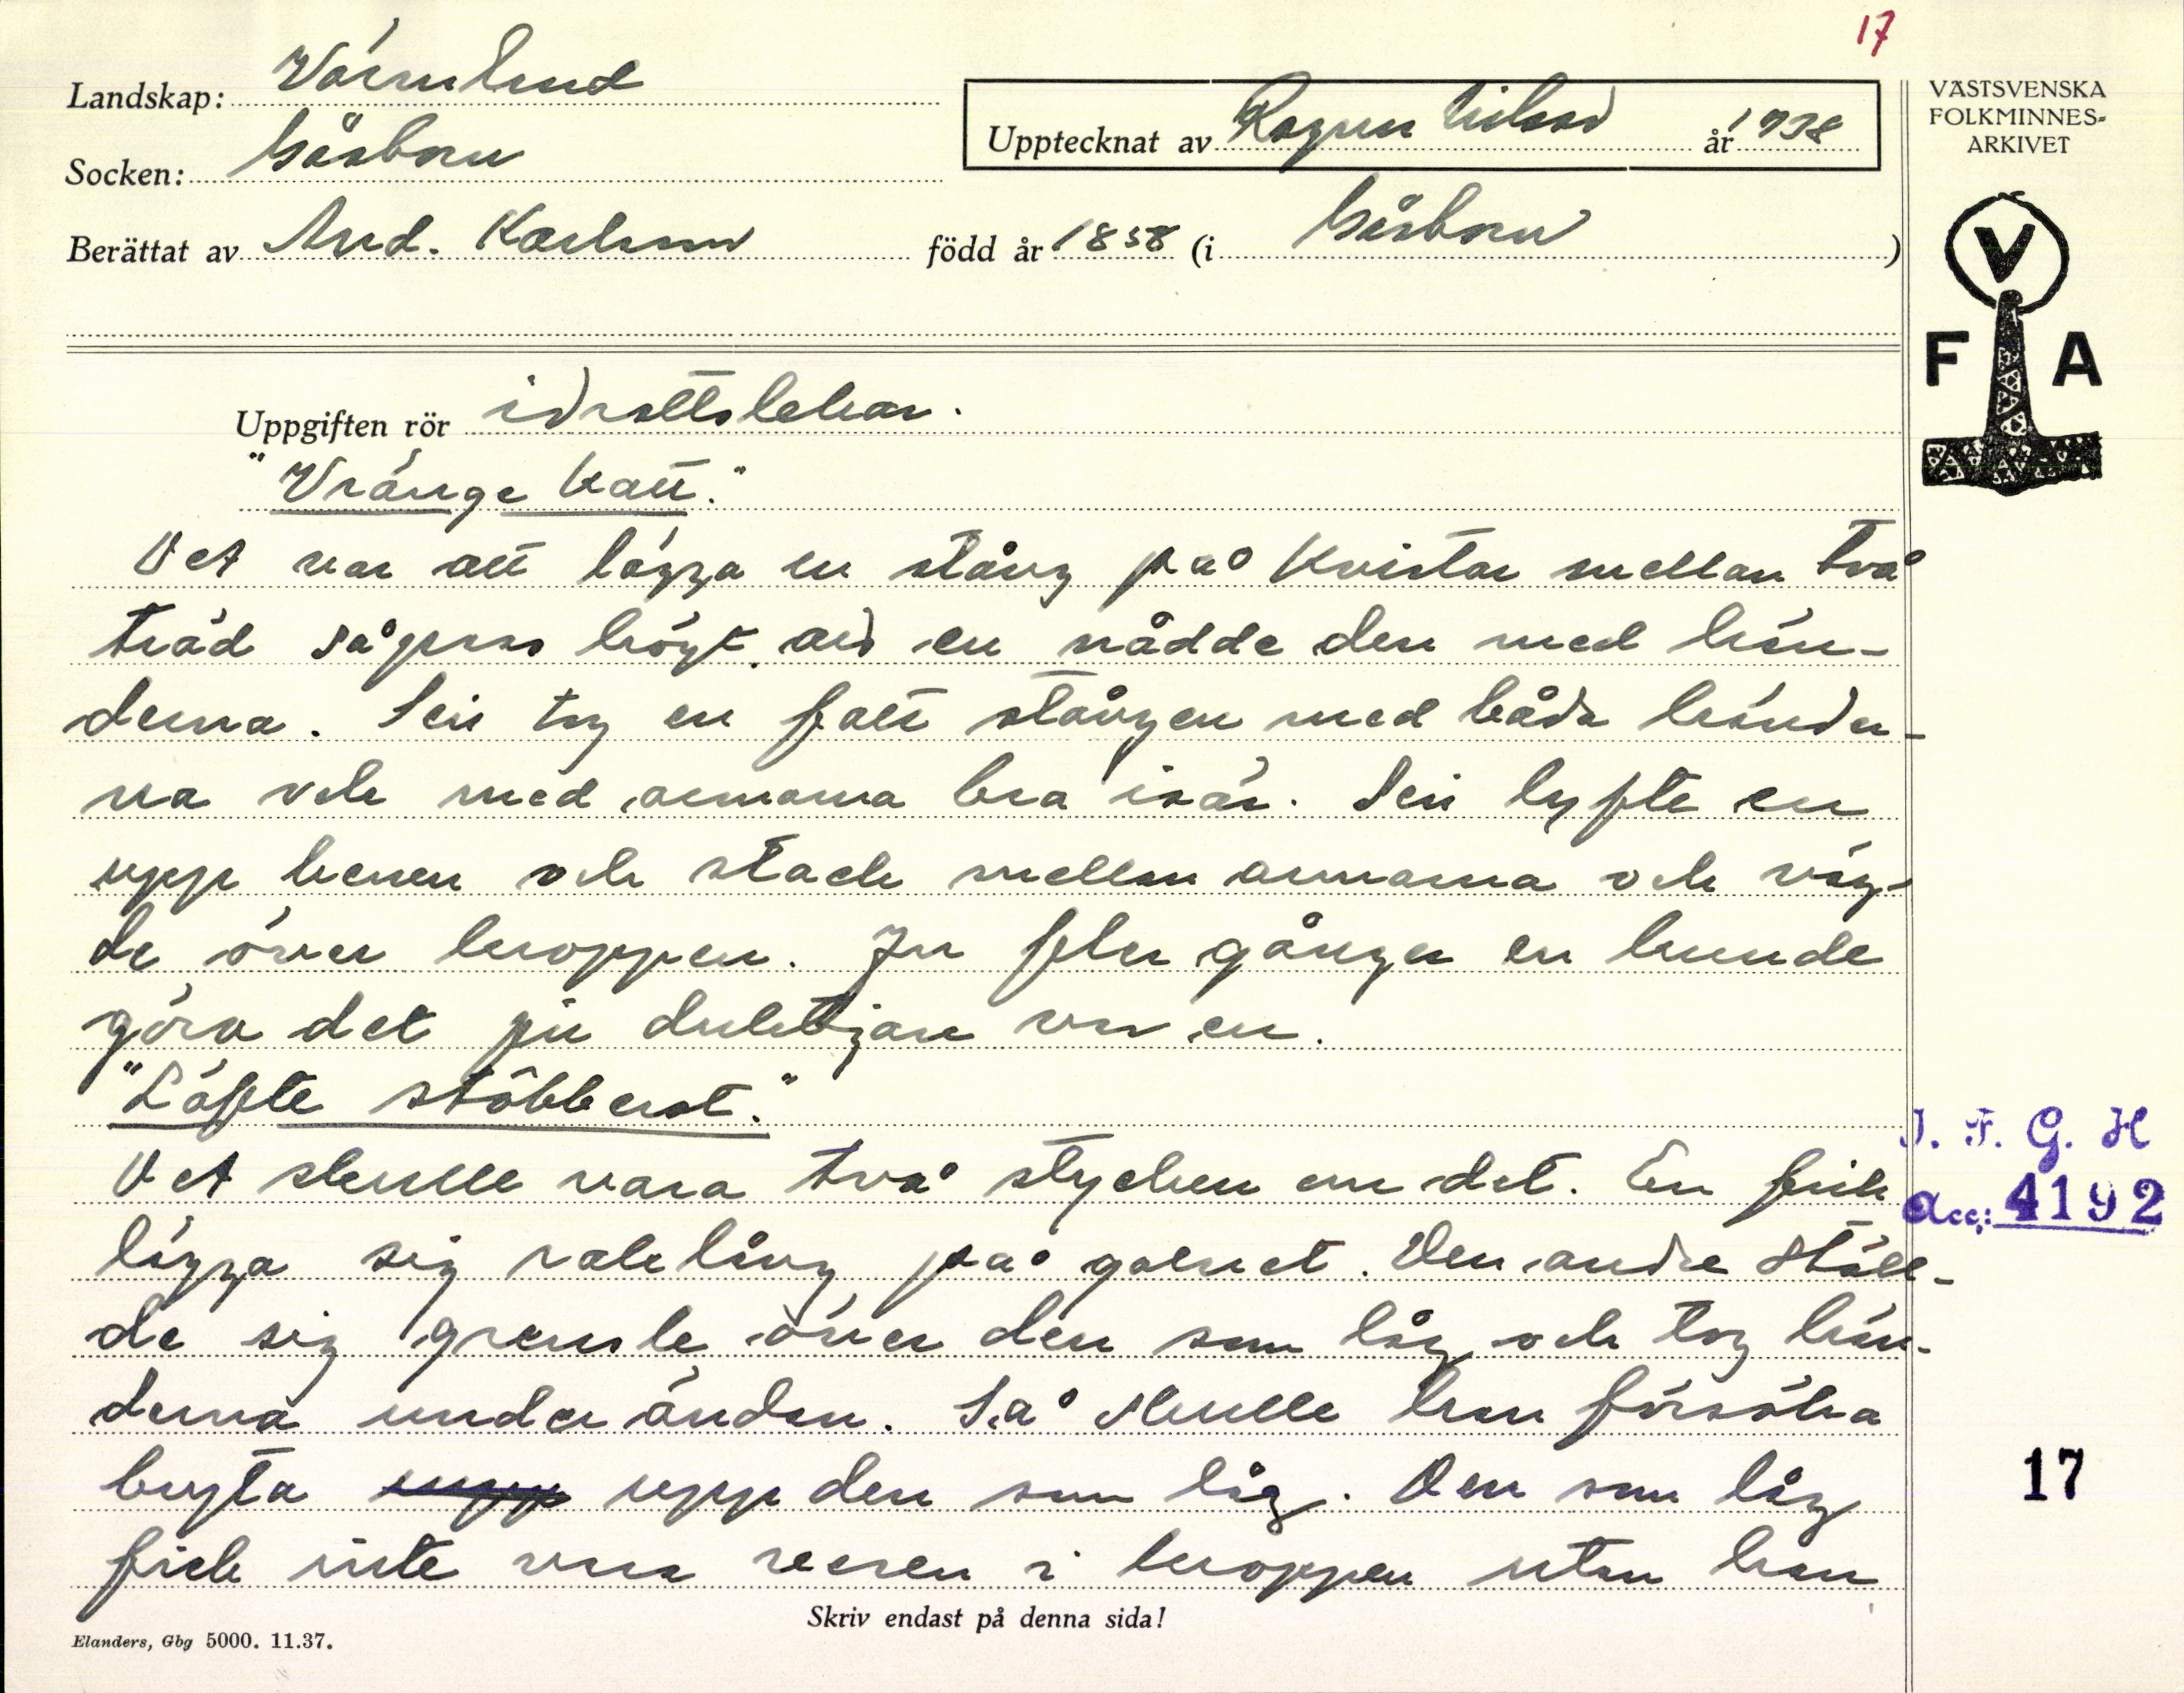 17
Landskap: Värmland
Socken: Gåsborn
Upptecknat av Ragnar Nilsson år 1938
Berättat av And. Karlsson född år 1858 (i Gåsborn)
VÄSTSVENSKA
FOLKMINNES-
ARKIVET
V
F A
Uppgiften rör idrottslekar.
"Vränge katt."
Det var att lägga en stång på kvistar mellan två
träd såpass högt att en nådde den med hän-
derna. Sen tog en fatt stången med båda händer-
na och med armarna bra isär. Sen lyfte en
upp benen och stack mellan armarna och väg-
de över kroppen. Ju fler gånger en kunde
göra det ju duktigare var en.
"Löfte stôbberst."
Det skulle vara två stycken om det. En fick
lägga sig raklång på golvet. Den andre ställ-
de sig grensle över den som låg och tog hän-
derna under ändan. Så skulle han försöka
lyfta upp upp den som låg. Den som låg
fick inte vara veken i kroppen utan han
J. F. G. H
Acc: 4192
17
Skriv endast på denna sida!
Elanders, Gbg 5000. 11.37.